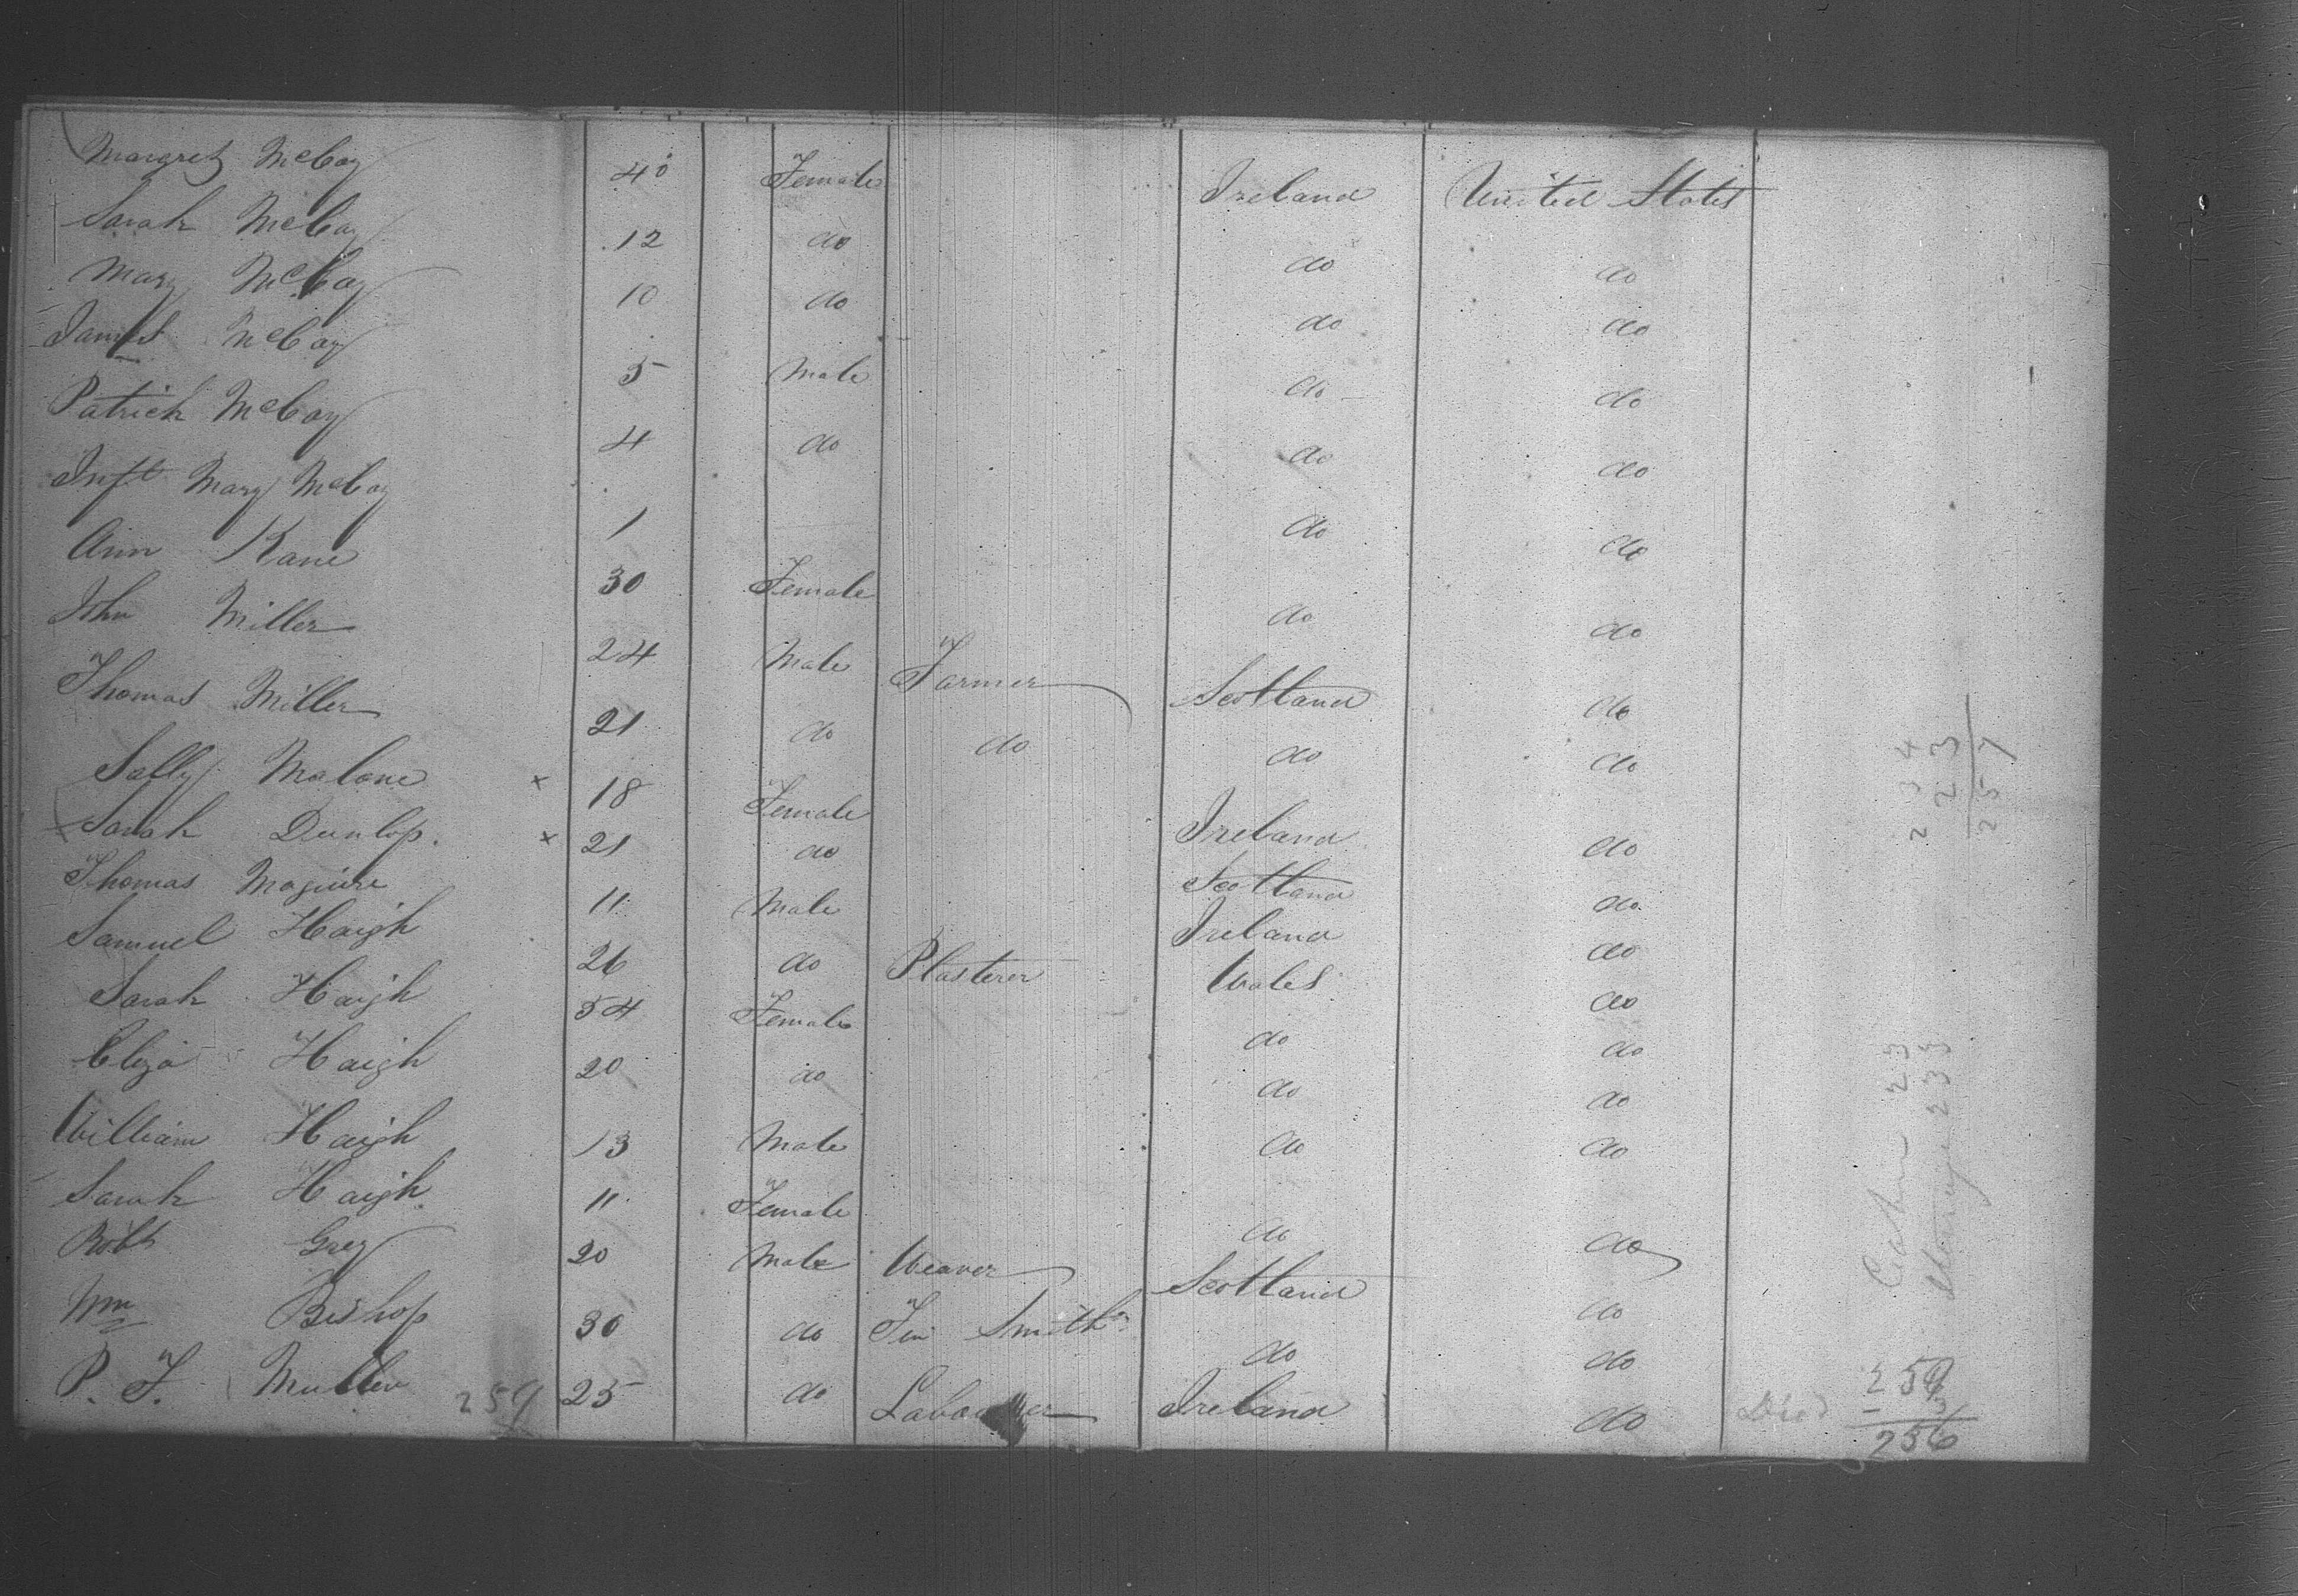 Margret McCoy 40 Female Ireland United States
Sarah McCoy 12 do do do
Mary McCoy 10 do do do
James McCoy 5 Male do do
Patrick McCoy 4 do do do
Inft Mary McCoy 1 do do
Ann Kane 30 Female do do
John Miller 24 Male Farmer Scotland do
Thomas Miller 21 do do do do
Sally Malone x 18 Female Ireland do
Sarah Dunlop. x 21 do Scotland do
Thomas Maguire 11 Male Ireland do
Samuel Haigh 26 do Plasterer Wales do
Sarah Haigh 54 Female do do
Eliza Haigh 20 do do do
William Haigh 13 Male do do
Sarah Haigh 11 Female do do
Robt Grey 20 Male Weaver Scotland do
Wm Bishop 30 do Tin Smith do do
P. T. Mullen 259 25 do Labourer Ireland do
234
23
257
Cabin 23
Steerage 233
259
Died - 3
256